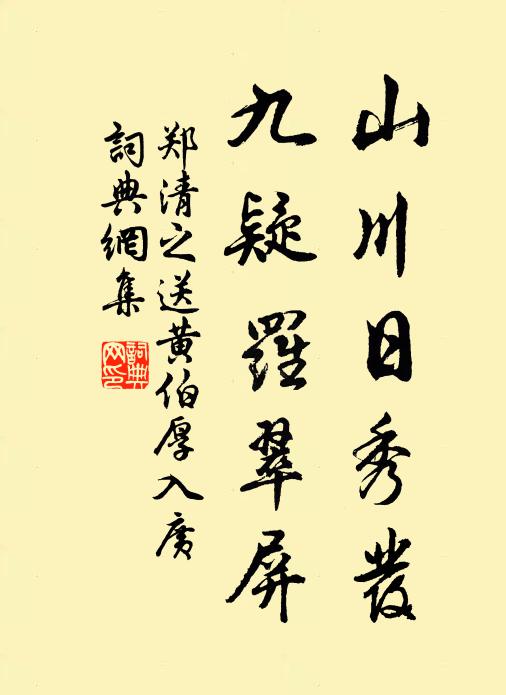 山川日秀發
九疑羅翠屏
郑清之送黄伯厚入廣
詞典網集
詞典网印